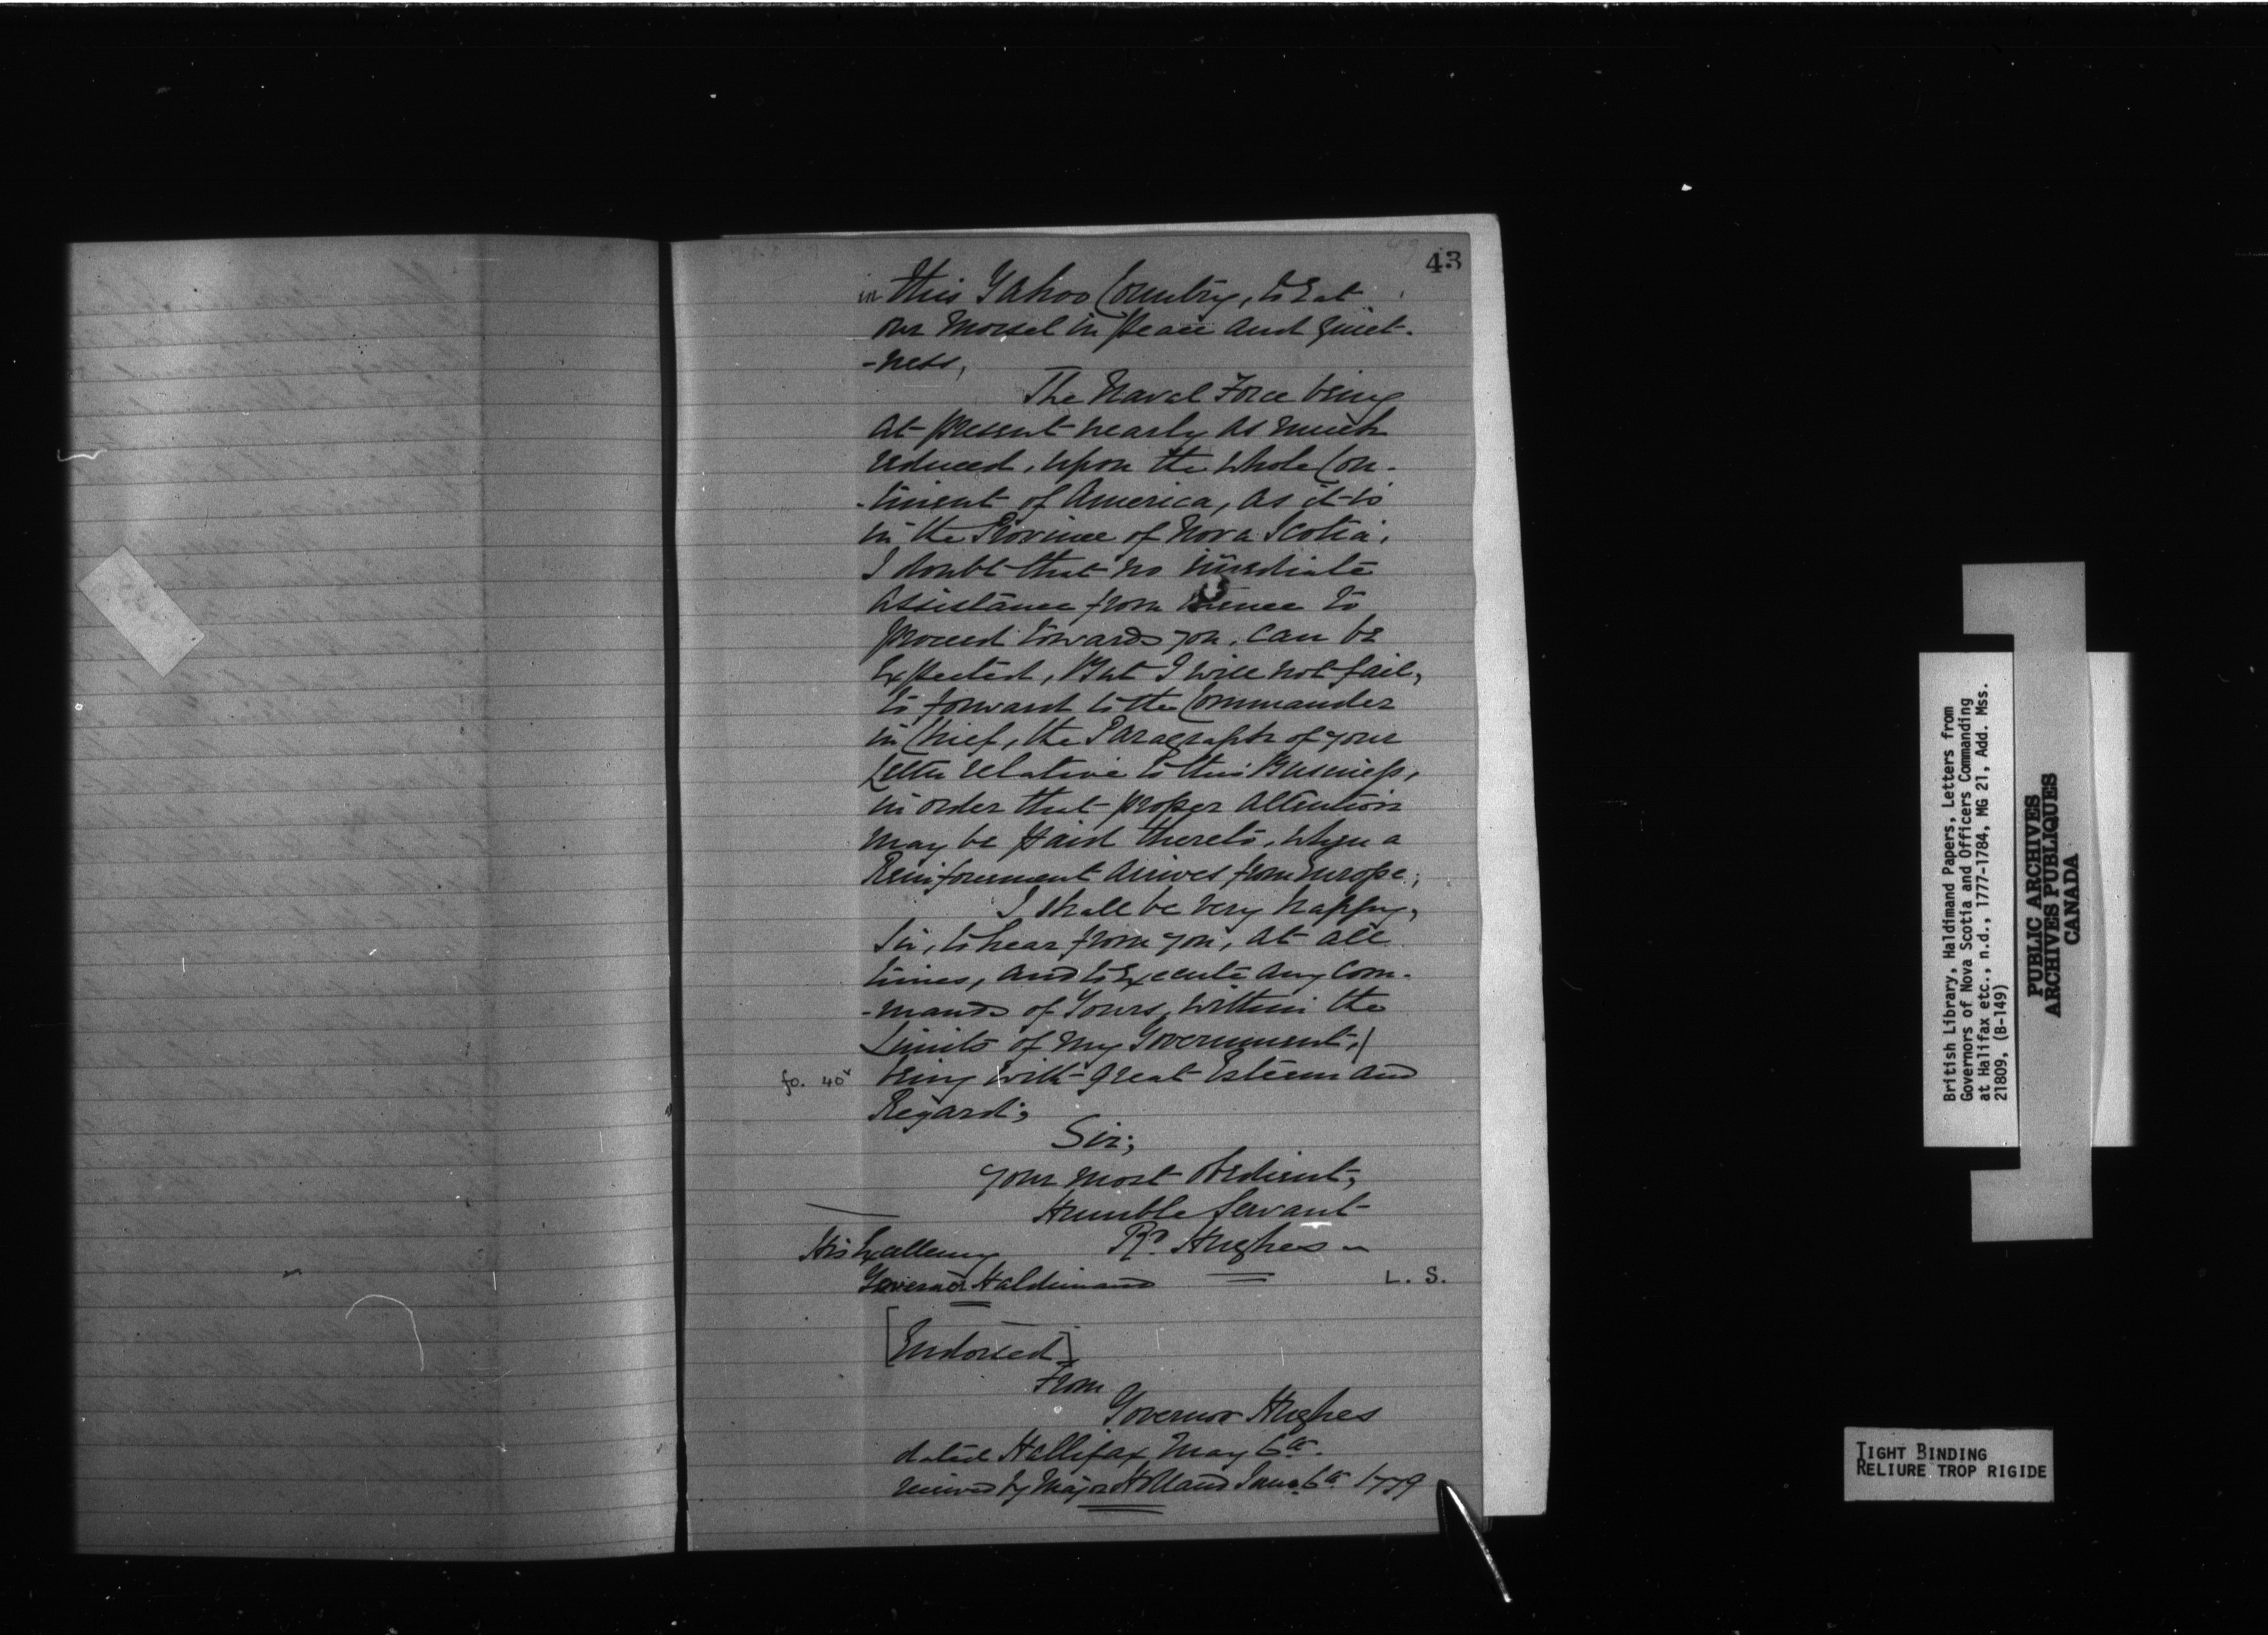 43
in this Yahoo Country, to Eat
our Morsel in peace and quiet-
-ness,
The Naval Force being
at present nearly as much
reduced, upon the whole Con-
-tinent of America, as it is
in the Province of Nova Scotia,
I doubt that no imediate
assistance from hence to
proceed towards you, can be
Expected, But I will not fail,
to forward to the Commander
in Chief, the Paragraph of your
Letter relative to this Business,
in order that proper attention
may be paid thereto, when a
Reinforcement arrives from Europe;
I shall be very happy,
Sir, to hear from you, at all
times, and to Execute any Com-
-mands of Yours, within the
Limits of my Government,/
fo. 40v being with great Esteem and
Regard;
Sir;
Your most Obedient,
Humble Servant
Rd. Hughes
His Excellency
Governor Haldimand
L. S.
[Endorsed]
From
Governor Hughes
dated Hallifax May 6th.
received by Major Holland June 6th 1779
British Library, Haldimand Papers, Letters from
Governors of Nova Scotia and Officers Commanding
at Halifax etc., n.d., 1777-1784, MG 21, Add. Mss.
21809, (B-149)
PUBLIC ARCHIVES
ARCHIVES PUBLIQUES
CANADA
TIGHT BINDING
RELIURE TROP RIGIDE